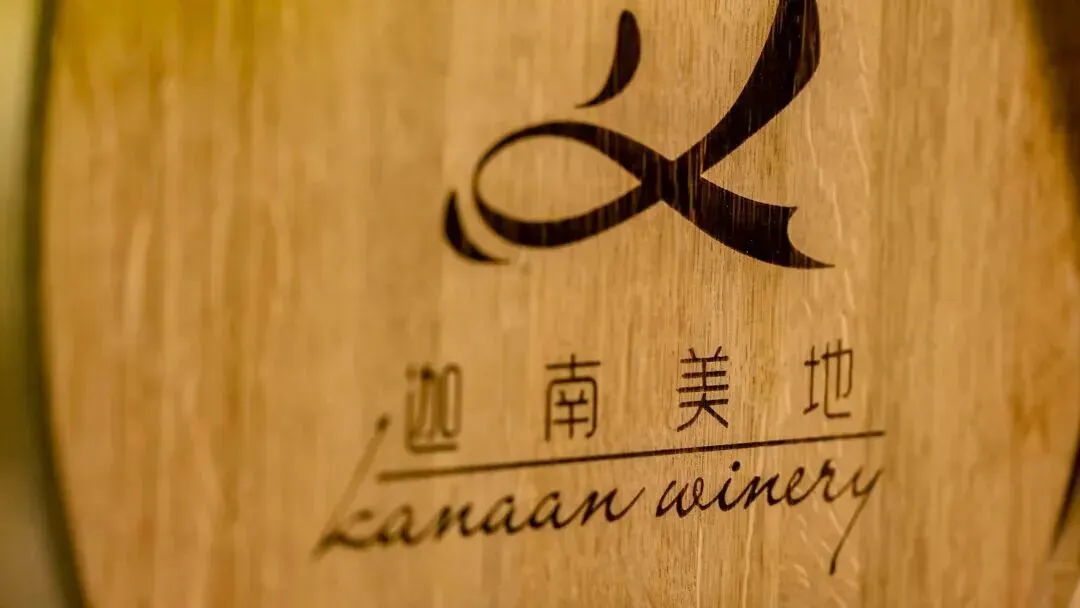 迦南美地
kanaan winery